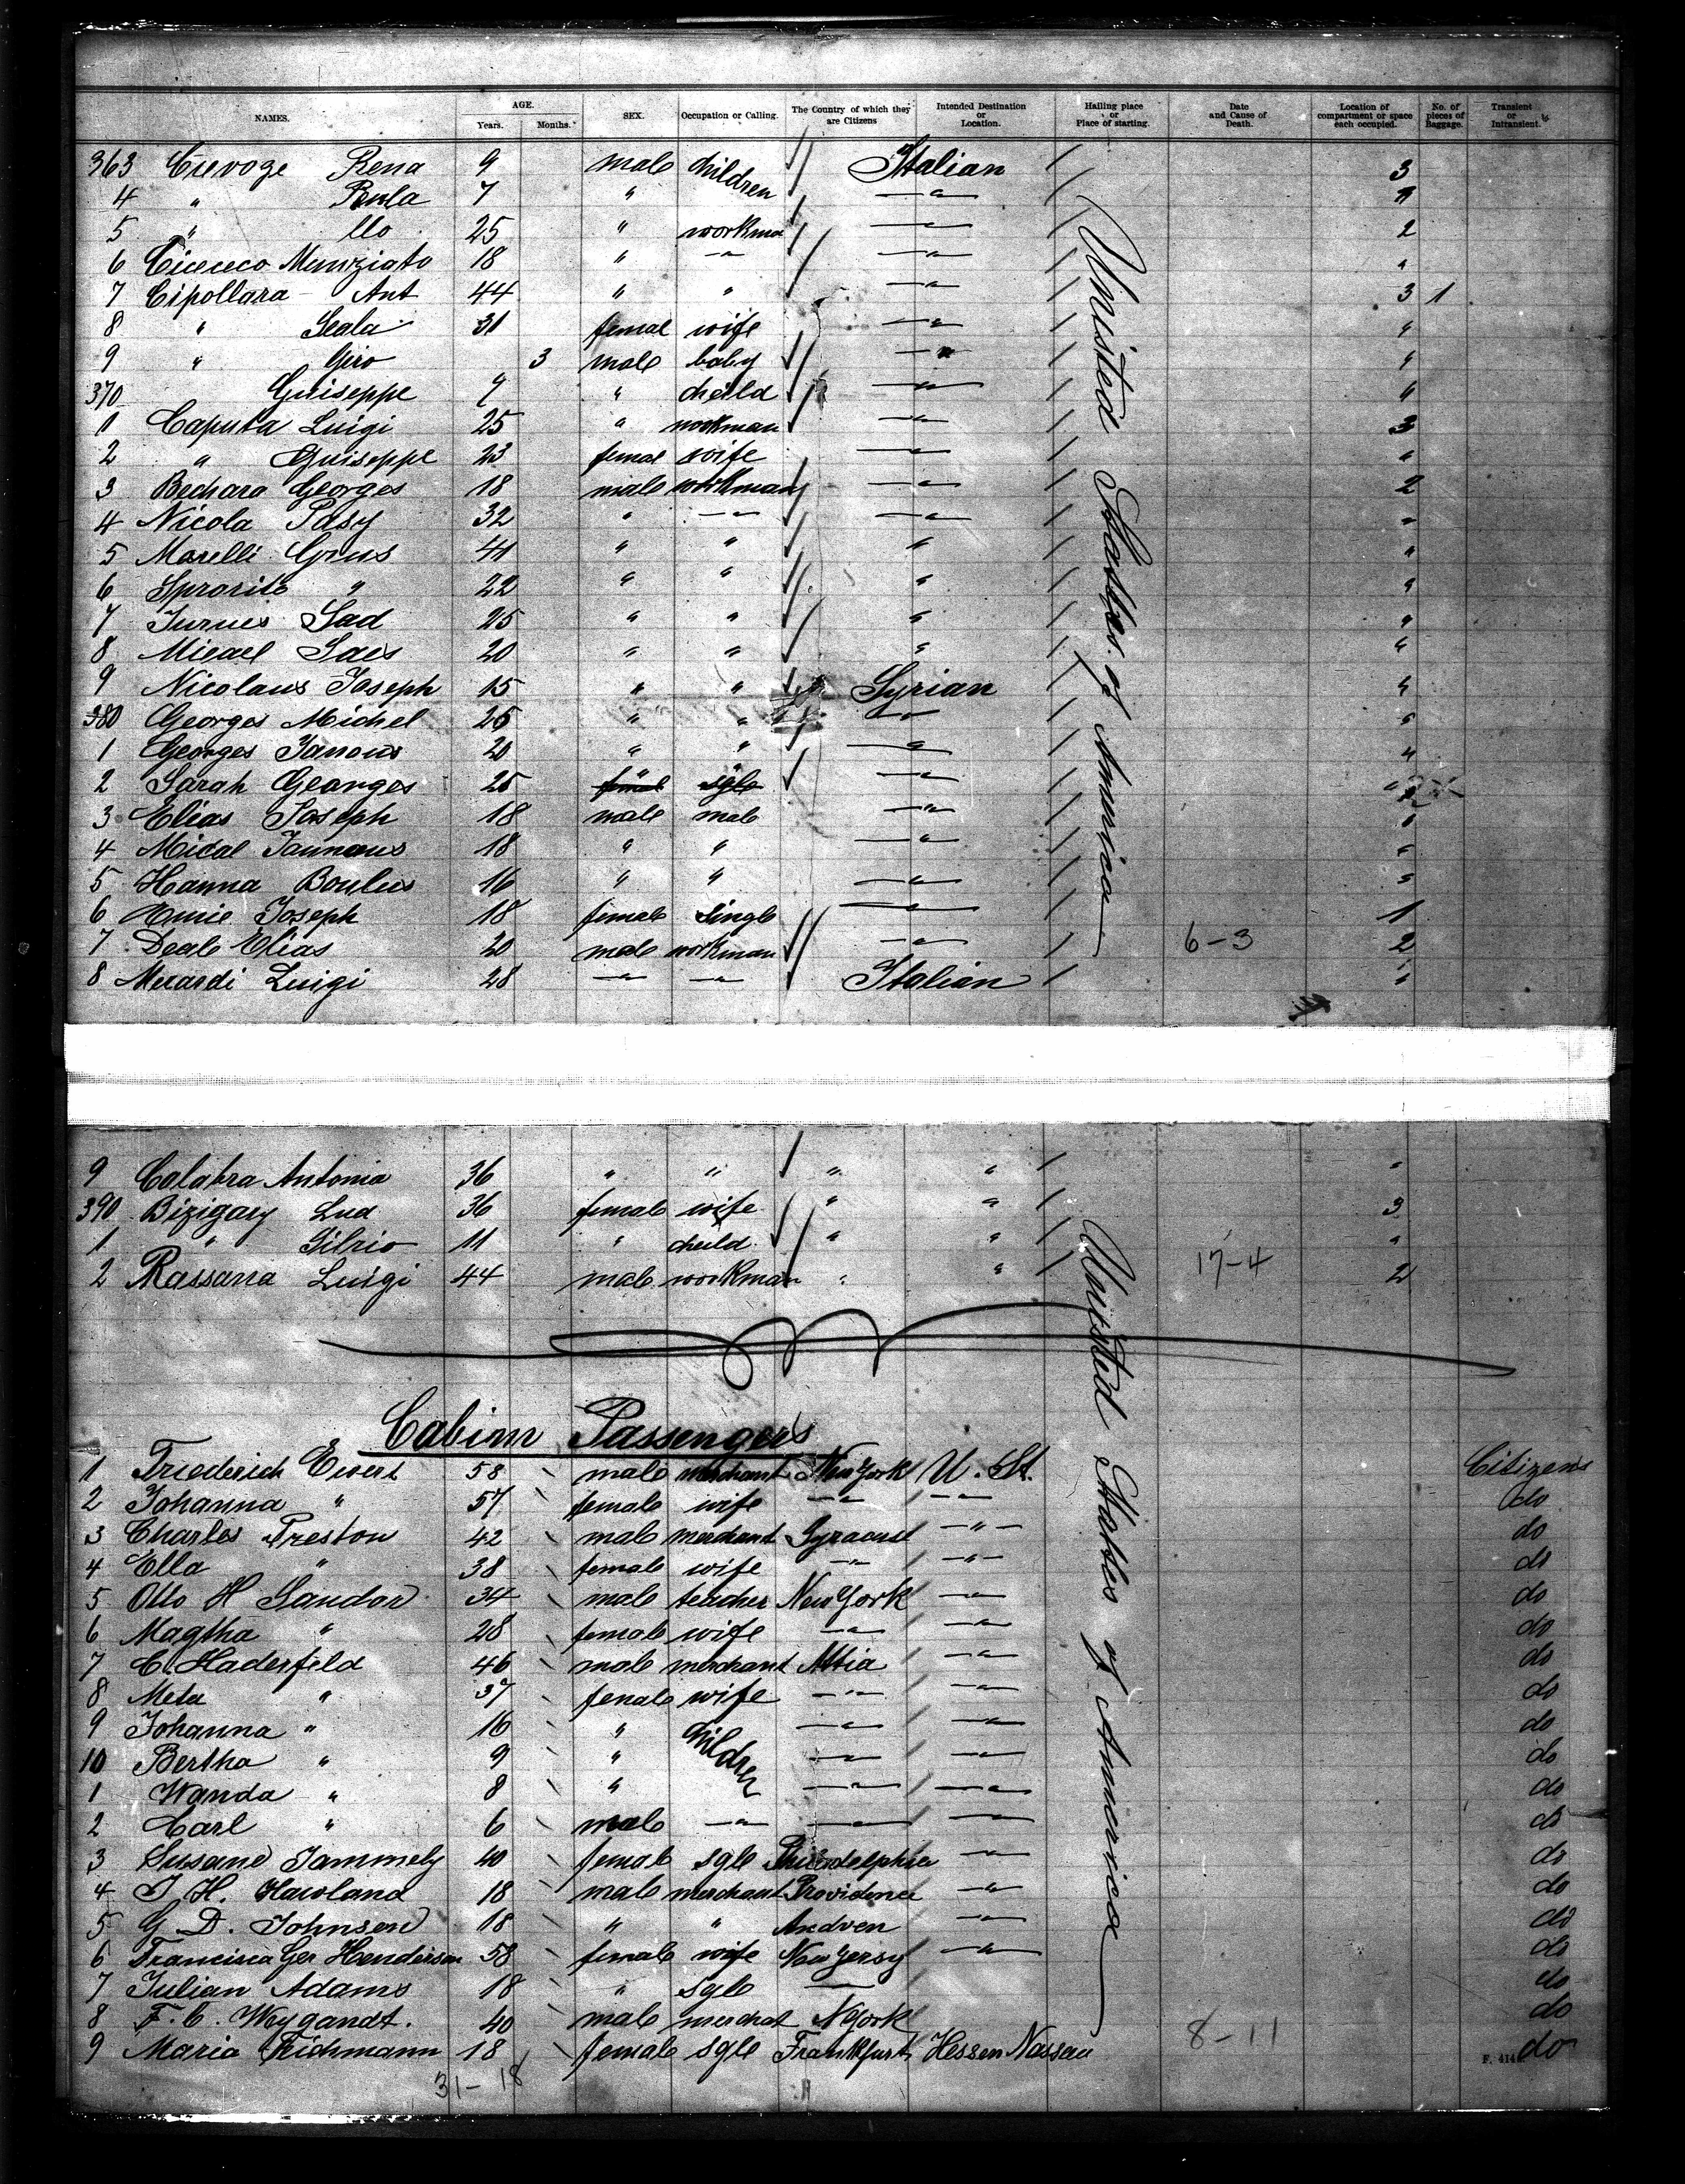 NAMES. AGE. Years. Months. SEX. Occupation or Calling. The Country of which they are Citizens Intended Destination or Location. Hailing place or Place of starting. Date and Cause of Death. Location of compartment or space each occupied. No. of pieces of Baggage. Transient or Intransient.
363 Crevoge Rena 9 male children Italian 3
4 " 7 " — " —
5 " llo 25 " workma — " — 2
6 Munziato 18 " — " — — " — "
7 Cipollara Ant 44 " " — " — 3 1
8 " 31 femal wife — " — "
9 " Giro 3 male baby — " — "
370 Guiseppe 9 " cheild — " — "
1 Caputa Luigi 25 " workman — " — 3
2 " Guiseppe 23 femal wife — " — "
3 Bechara Georges 18 male workman — " — 2
4 Nicola Pasy 32 " — " — — " — "
5 Marelli 41 " " " "
6 Sprorito " 22 " " " "
7 Sad 25 " " " "
8 Micael Saes 20 " " " "
9 Nicolaus Joseph 15 " " Syrian "
380 Georges Michel 25 " " — " — "
1 Georges Janous 20 " " — " — "
2 Sarah Georges 25 femal sgle — " — "
3 Elias Joseph 18 male male — " — "
4 Mical 18 " " — " — "
5 Hanna Boulus 16 " " — " — "
6 Joseph 18 female single — " — 1
7 Deab Elias 20 male workman — " — 6-3 2
8 Merardi Luigi 28 — " — — " — Italian "
Unisted Staates of America
9 Calabra Antonia 36 " " " " "
390 Bizigary Lua 36 female wife " " 3
1 " Silvio 11 " cheild " " "
2 Rassana Luigi 44 male workman " " 17-4 2
Cabinn Passengers
1 Friederich Ewert 58 male merchant New York U. St. Citizens
2 Johanna " 57 female wife — " — — " — do
3 Charles Preston 42 male merchant Syracuse — " — do
4 Ella " 38 female wife — " — — " — do
5 Otto H Sandor 34 male teacher New York — " — do
6 Magtha " 28 female wife — " — — " — do
7 C. Haderfeld 46 male merchant — " — do
8 Meta " 37 female wife — " — — " — do
9 Johanna " 16 " children — " — — " — do
10 Bertha " 9 " — " — — " — do
1 Wanda " 8 " — " — — " — do
2 Carl " 6 male — " — — " — — " — do
3 Susane Jammely 40 female sgle Philadelphia — " — do
4 J. H. Hawland 18 male merchant Providence — " — do
5 G. D. Johnsen 18 " " Andven — " — do
6 Francisca Ger Henderson 58 female wife New Jersy — " — do
7 Julian Adams 18 " sgle — do
8 F. C. Weygandt. 40 male merchat N York 8-11 do
9 Maria Teichmann 18 female sgle Frankfurt Hessen Nassau do
Unisted Staates of America
31-18
F. 414